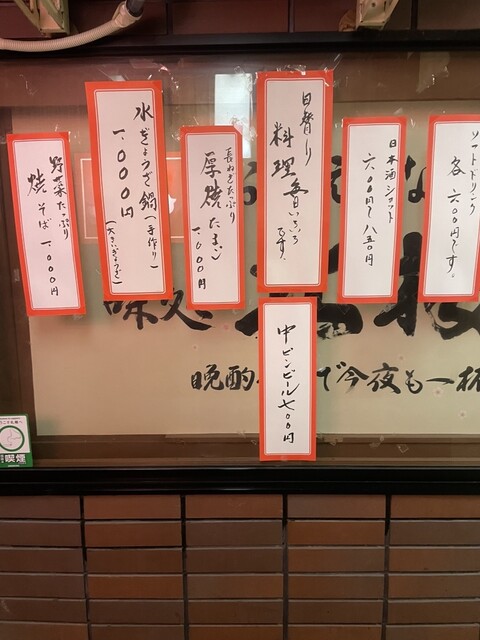 ソフトドリンク
各 六〇〇円です。
日本酒ショット
六〇〇円〜八五〇円
日替り
料理
長ねぎたっぷり
厚焼たまご
一、〇〇〇円
水ぎょうざ鍋(手作り)
一、〇〇〇円
(大きいぎょうざ)
野菜たっぷり
焼そば 一、〇〇〇円
中ビンビール七〇〇円
味処
晩酌
で今夜も一杯
喫煙